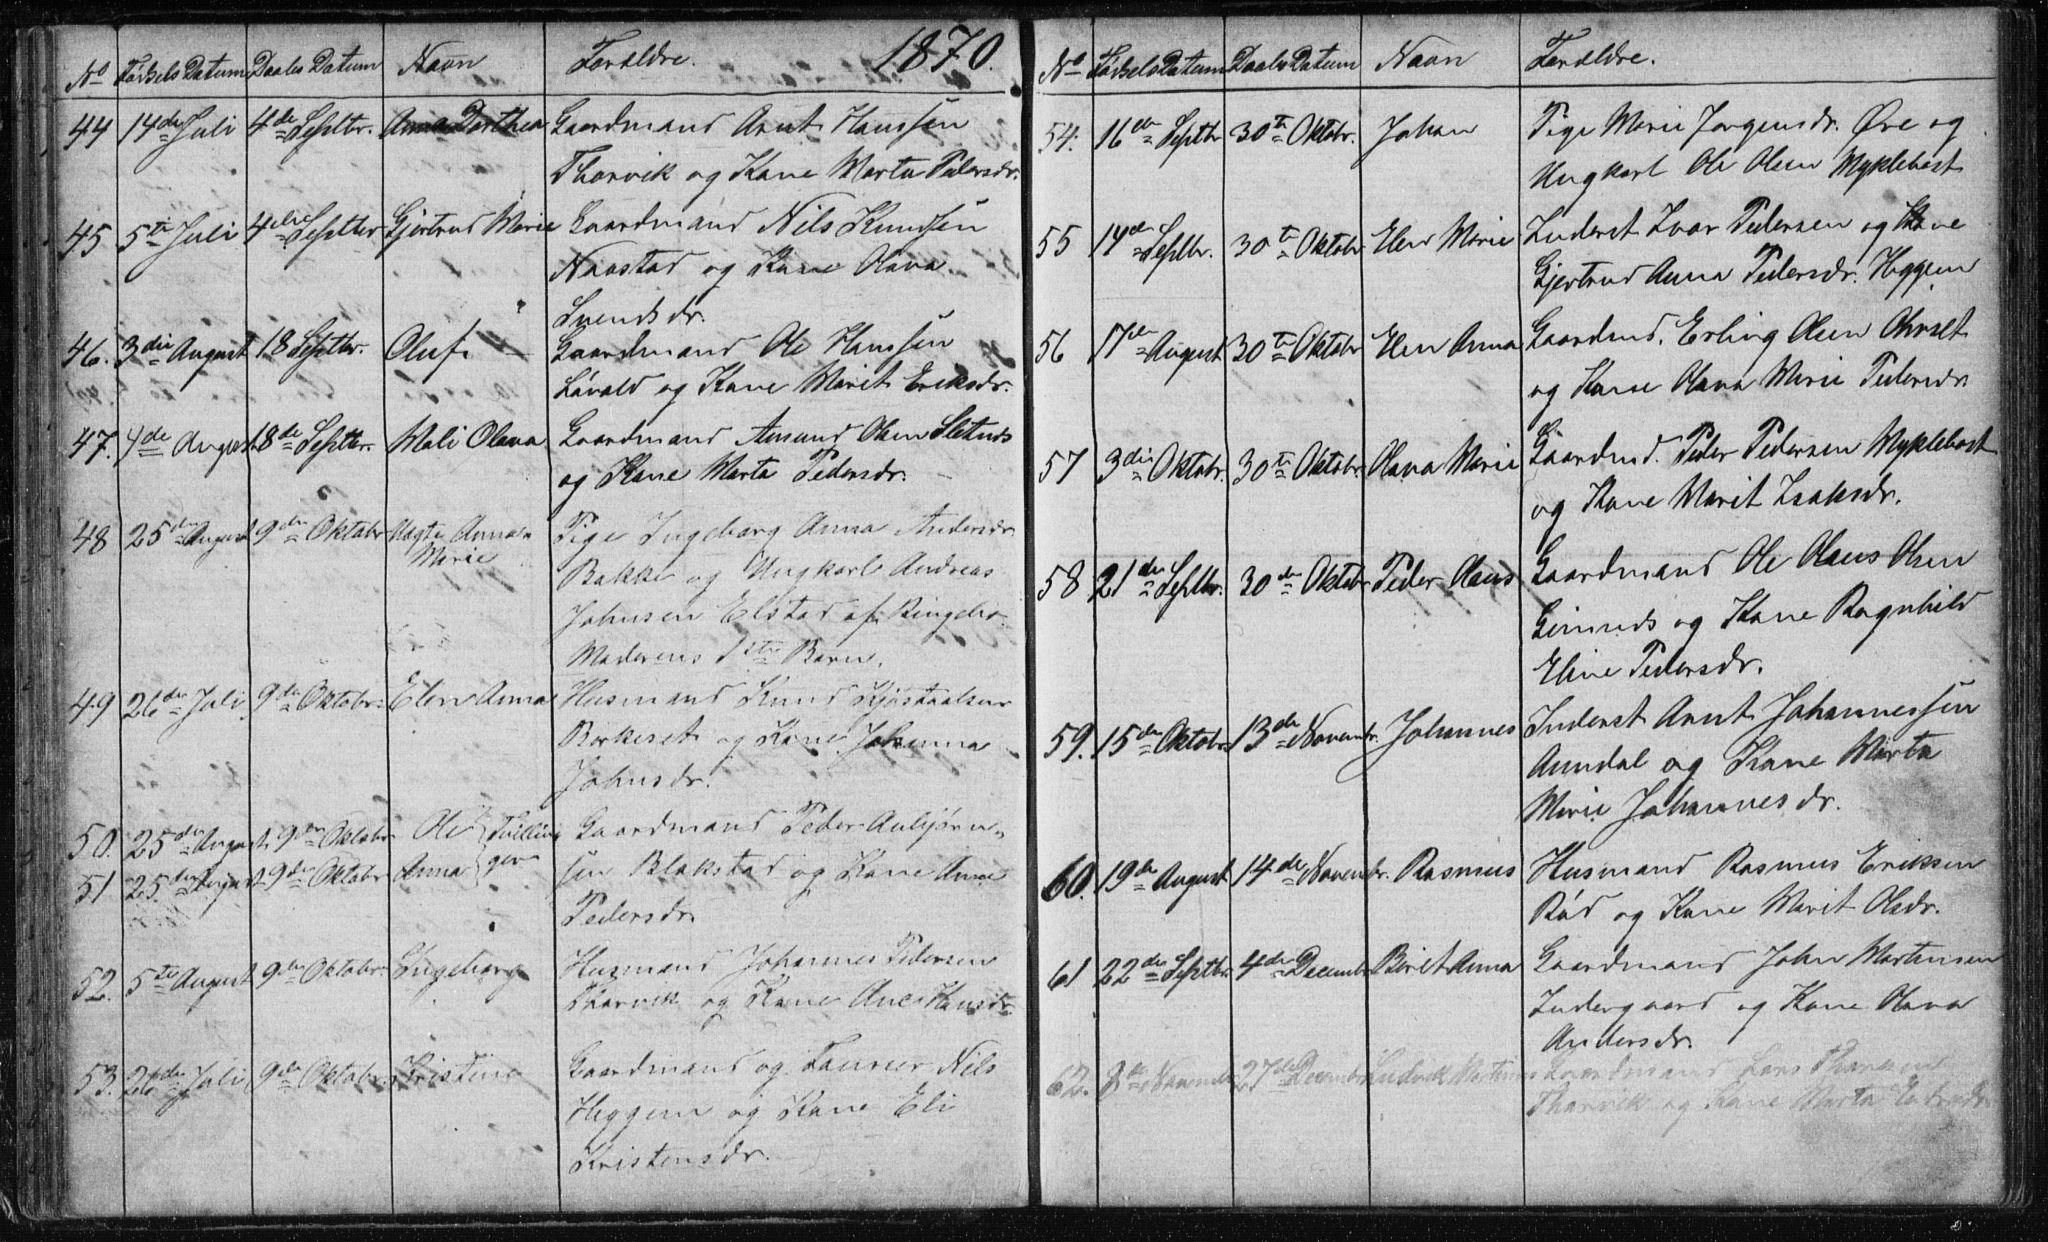 1870.
No Fødsels Datum Daabs Datum Navn Forældre.
44 14de Juli 4de Septbr. Anna Dorthea Gaardmand Arnt Hanssen
Thorvik og Kone Marta Pedersdr.
45 5te Juli 4de Septbr Gjertrud Marie Gaardmand Nils Knudsen
Naastad og Kone Olava
Svendsdr.
46. 3die August 18 Septbr. Oluf Gaardmand Ole Hanssen
Løvold og Kone Marit Eriksdr.
47. 4de August 18de Septbr. Mali Olava Gaardmand Amund Olsen Sletnes
og Kone Marta Pedersdr.
48 25de August 9de Oktobr Anna
Marie Pige Ingeborg Anna Andersdr.
Bakke og Ungkarl Andreas
Johnsen Elstad af Ringebo
Moderens 1ste Barn.
49 26de Juli 9de Oktobr. Elen Anna Husmand Knud
og Kone Johanna
Johnsdr.
50. 25de August 9de Oktobr Ole Tvillin Gaardmand Peder Anbjørn-
51 25de August 9de Oktobr Anna ger sen Blakstad og Kone Anne
Pedersdr.
52. 5te August 9de Oktobr. Ingeborg Husmand Johannes Pedersen
Thorvik og Kone Ane Hansdr.
53. 26de Juli 9de Oktobr. Kristine Gaardmand og Nils
Heggem og Kone Eli
Kristensdr.
No Fødsels Datum Daabs Datum Navn Forældre.
54. 16de Septbr 30te Oktobr. Johan Pige Marie Jørgensdr. Øre og
Ungkarl Ole Olsen Myklebost
55 14de Septbr. 30te Oktobr Elen Marie Inderst Ivar Pedersen og Kone
Gjertrud Anna Pedersdr. Heggem
56 17de August 30te Oktobr Elen Anna Gaardmd. Erling Olsen Orset
og Kone Olava Marie Pedersdr.
57 3die Oktobr. 30te Oktobr. Olava Marie Gaardmd. Peder Pedersen Myklebost
og Kone Marit Isaksdr.
58 21de Septbr. 30de Oktobr Peder Olaus Gaardmand Ole Olaus Olsen
Gimnes og Kone Ragnhild
Eline Pedersdr.
59. 15de Oktobr. 13de Novembr. Johannes Inderst Arnt Johannessen
Aundal og Kone Marta
Marie Johannesdr.
60. 19de August 14de Novembr. Rasmus Husmand Rasmus Eriksen
Rød og Kone Marit Olsdr.
61 22de Septbr. 4de Decembr Berit Anna Gaardmand John Mortensen
Indergaard og Kone Olava
Andersdr.
62. 8de Novembr 27de Decembr Ludvik Martinus Gaardmand Lars
Thorvik og Kone Marta